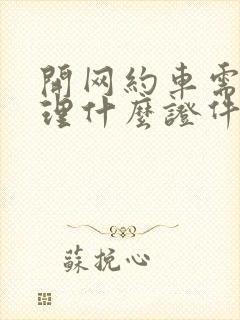 開网約車需
理什麼證件
蘇挽心